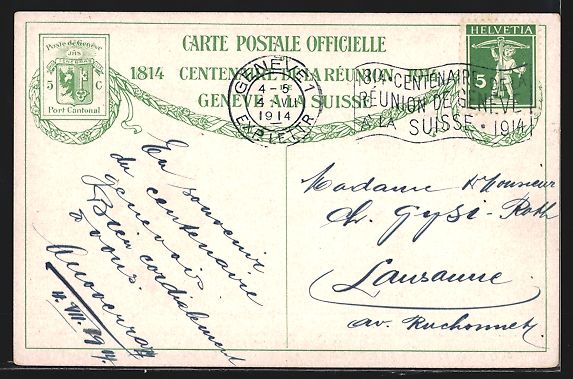 Poste de Genève
JHS
5 C
Port Cantonal
CARTE POSTALE OFFICIELLE
1814 CENTENAIRE DE LA RÉUNION 1914
GENÈVE A LA SUISSE
HELVETIA
5
GENÈVE 1
4-5
4 VII
1914
EXP. LETTR.
100e CENTENAIRE DE LA
RÉUNION DE GENÈVE
A LA SUISSE · 1914
En souvenir
du centenaire
genevois.
Bien cordialement
à vous.
4. VII. 1914.
Madame & Monsieur
Ch. Gysi-Roth
Lausanne
av. Ruchonnet